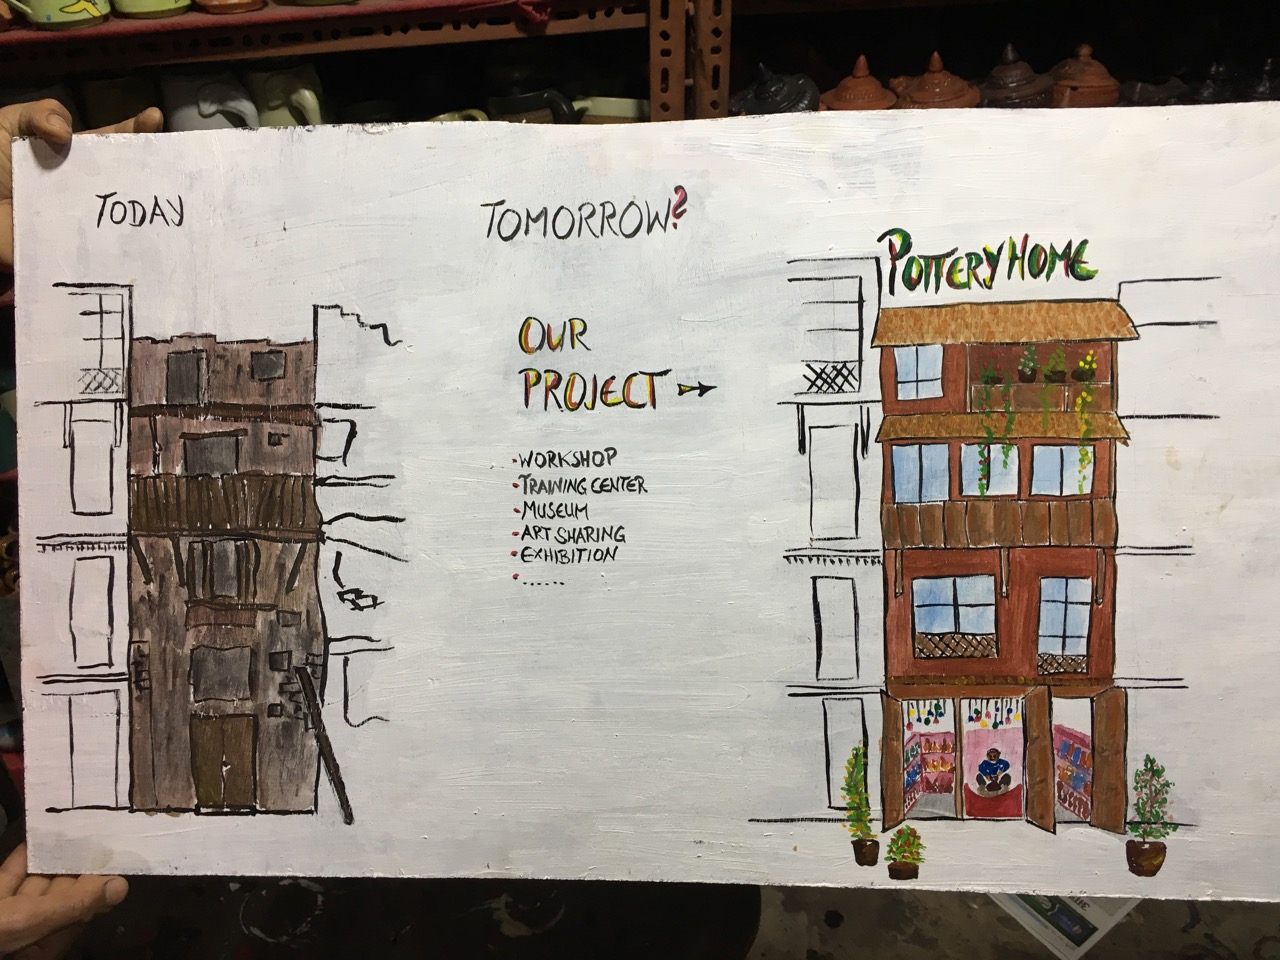 TODAY
TOMORROW?
POTTERY HOME
OUR
PROJECT
• WORKSHOP
• TRAINING CENTER
• MUSEUM
• ART SHARING
• EXHIBITION
• ......